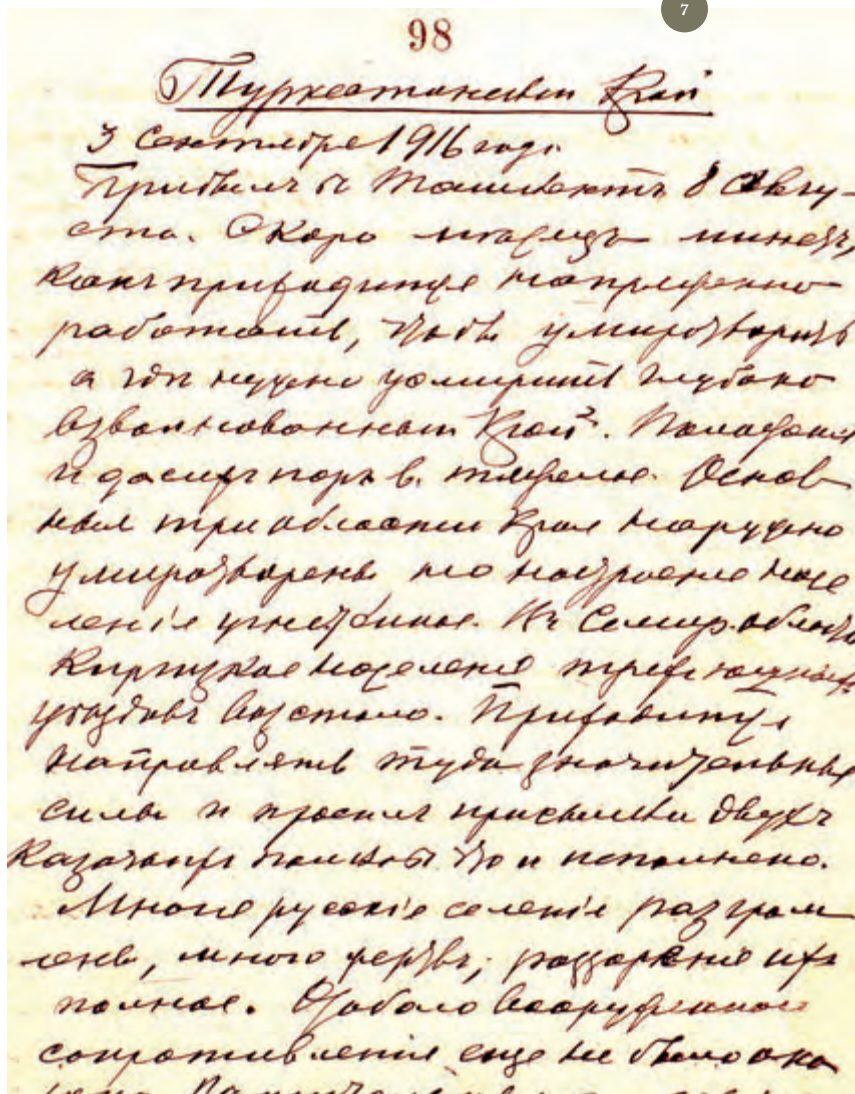 7
98
Туркестанскій Край
3 Сентября 1916 года
Прибылъ въ Ташкентъ 8 Авгу-
ста. Скоро мѣсяцъ минетъ,
какъ приходится напряженно
работать, чтобы умиротворить
а гдѣ нужно усмирить глубоко
взволнованный Край. Положение
и до сихъ поръ в. тяжелое. Основ
ныя три области Края наружно
умиротворены но настроение насе
ленія угнетённое. Въ Семир. области
Киргизское населеніе трехъ южныхъ
уѣздовъ возстало. Приходится
направлять туда значительныя
силы и просилъ присылки двухъ
Казачьихъ полковъ что и исполнено.
Многіе русскіе селенія разгром
лены, много жертвъ, раззореніе ихъ
полное. Особого вооруженного
сопротивленія еще не было ока